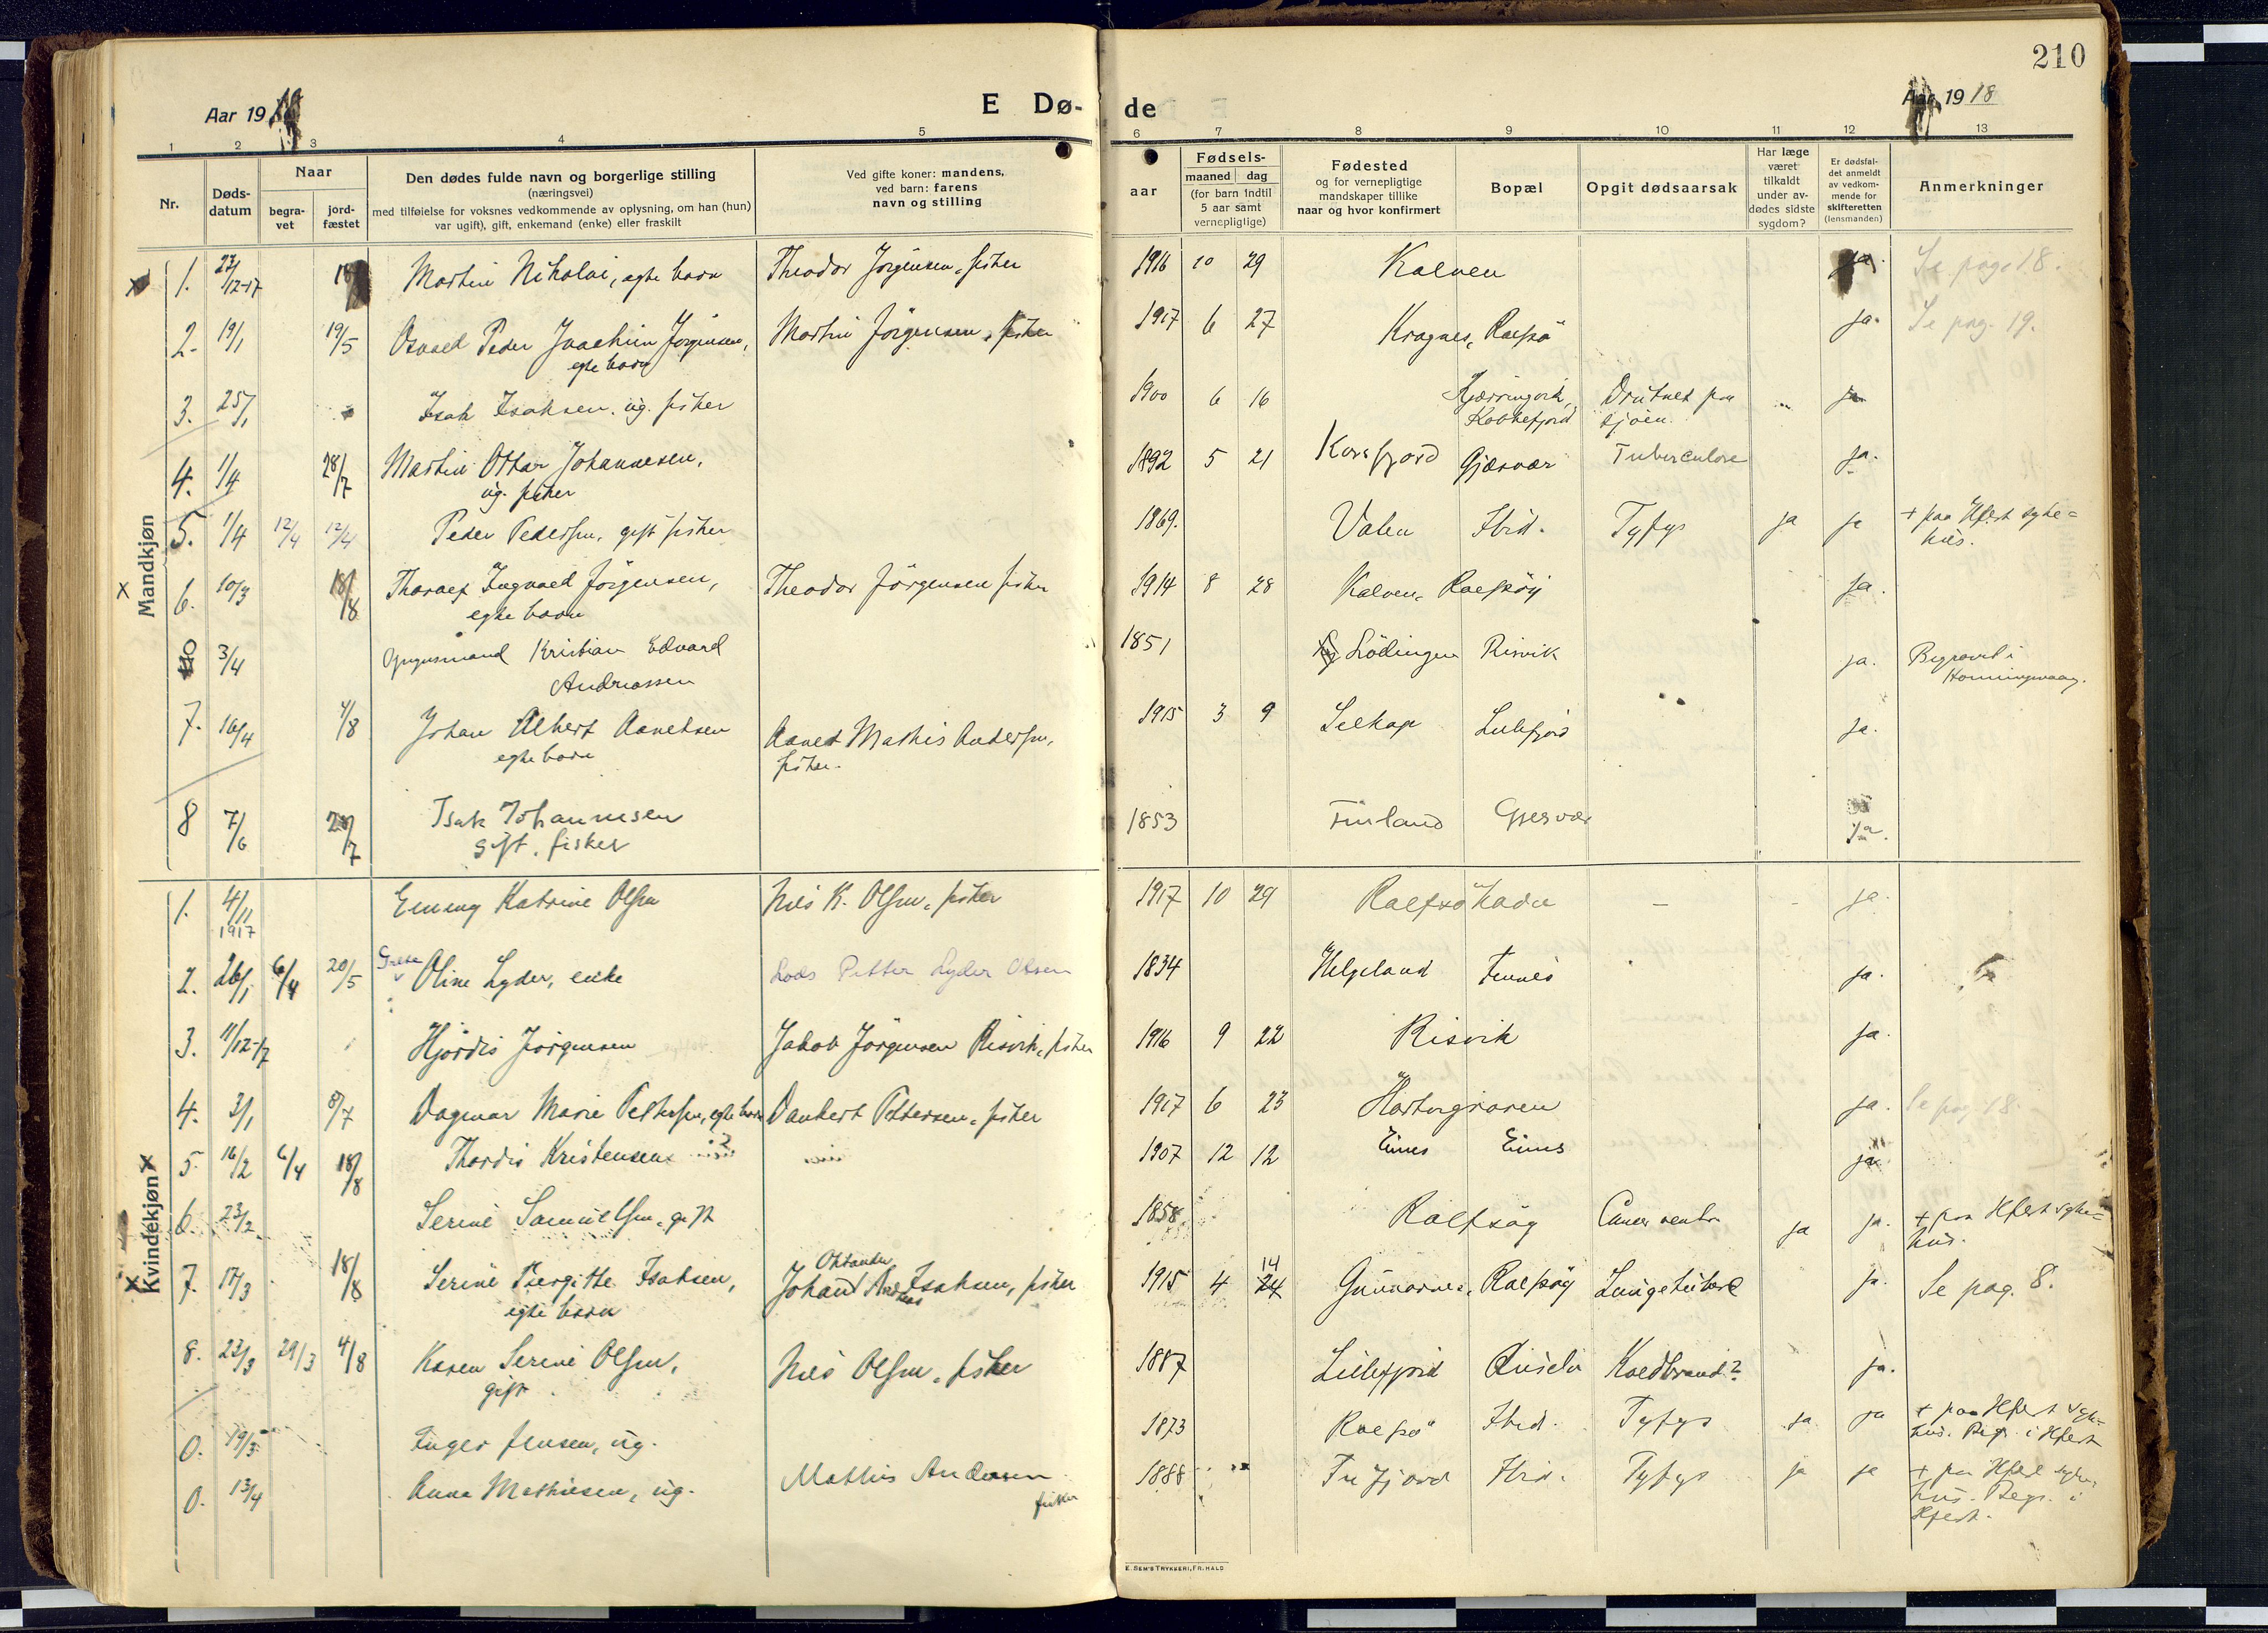 210
Aar 1918 E Dø- de Aar 1918
1 2 3 4 5 6 7 8 9 10 11 12 13
Nr.
Døds-
datum
Naar
begra-
vet
jord-
fæstet
Den dødes fulde navn og borgerlige stilling
(næringsvei)
med tilføielse for voksnes vedkommende av oplysning, om han (hun)
var ugift), gift, enkemand (enke) eller fraskilt
Ved gifte koner: mandens,
ved barn: farens
navn og stilling
aar
Fødsels-
maaned dag
(for barn indtil
5 aar samt
vernepligtige)
Fødested
og for vernepligtige
mandskaper tillike
naar og hvor konfirmert
Bopæl
Opgit dødsaarsak
Har læge
været
tilkaldt
under av-
dødes sidste
sygdom?
Er dødsfal-
det anmeldt
av vedkom-
mende for
skifteretten
(lensmanden)
Anmerkninger
Mandkjøn
1. 23/12-17 Martin Nikolai, egte barn Theodor Jørgensen, fisker 1916 10 29 Kalven ja. Se pag. 18.
2. 19/1 19/5 Osvald Peder Joachim Jørgensen, Martin Jørgensen, fisker 1917 6 27 Kragnes, Rolfsø ja. Se pag. 19.
egte barn
3. 25/1 Isak Isaksen. ug. fisker 1900 6 16 Kjærringvik, Druknet paa ja
Kobbefjord sjøen.
4. 1/4 28/7 Martin Ottar Johannesen, 1892 5 21 Korsfjord Gjæsvær Tuberculose ja.
ug. fisker
5. 1/4 12/4 12/4 Peder Pedersen, gift fisker 1869. Valen Ibid. Tyfys ja ja + paa Hfest syke=
hus.
6. 10/3 18/8 Thoralf Ingvald Jørgensen, Theodor Jørgensen fisker 1914 8 28 Kalven, Rolfsøy ja.
egte barn
0 3/4 Gyngusmand Kristian Edvard 1851 Lödingen Risvik ja. Begravet i
Andreassen Honningsvaag.
7. 16/4 4/8 Johan Albert Aanetsen Aanet Mathis Andersen, 1915 3 9 Selkop Lillefjord ja.
egte barn fisker.
8 7/6 28/7 Isak Johannesen 1853 Finland Gjesvær ja.
gift. fisker
Kvindekjøn
1. 4/11 Emmy Katrine Olsen Nils K. Olsen, fisker 1917 10 29 Rolfsøhavn – - ja.
1917
2. 26/1 6/4 20/5 Grete Oline Lyder, enke Lods Petter Lyder Olsen 1834 Helgeland Tunnes ja.
3. 11/12-17 Hjørdis Jørgensen Jakob Jørgensen Risvik, fisker 1916 9 22 Risvik ja.
4. 3/1 8/7 Dagmar Marie Pettersen, egte barn Dankert Pettersen, fisker 1917 6 23 Hastergraven ja. Se pag. 18.
5. 16/2 6/4 18/8 Thordis Kristensen 1907 12 12 Einnes Einnes ja
6. 23/2 Serine Samuelsen, gift 1858 Rolfsøy Cancer ventr. ja ja. + paa Hfest syke=
hus.
7. 17/3 18/8 Serine Birgitte Isaksen, Johan Oktander Andreas Isaksen, fisker 1915 4 14 Gunnarnes, Rolfsøy Lungetuberc ja. Se pag. 8.
egte barn
8. 23/3 29/3 4/8 Karen Serine Olsen, Nils Olsen, fisker 1887 Lillefjord Koldbrand? ja.
gift
0. 19/3 Inger Jensen, ug. 1873 Rolfsø Ibid. Tyfys ja ja + paa Hfest syke=
hus. Begr. i Hfest
0. 13/4 Anna Mathisen, ug. Mathis Andersen 1888 Tufjord Ibid. Tyfys ja ja + paa Hfest syke=
fisker hus. Begr. i
Hfest.
E. SEM'S TRYKKERI, FR. HALD